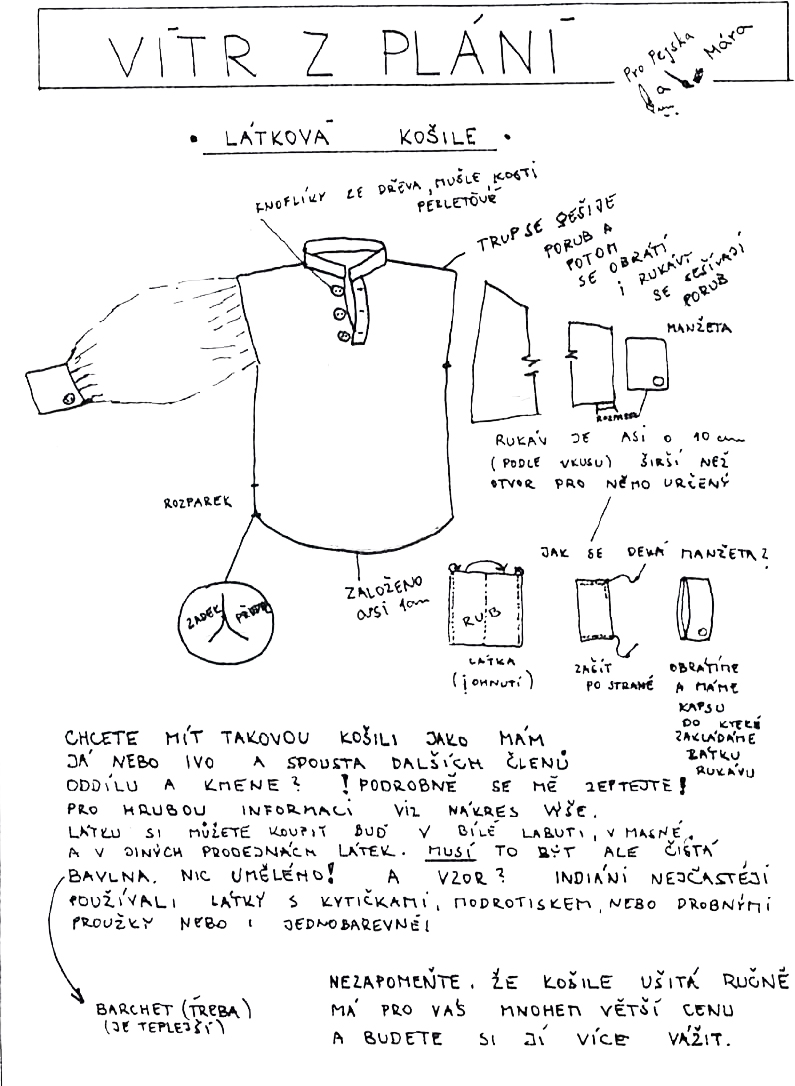 VÍTR Z PLÁNÍ
Pro Pejska
a
Mára
• LÁTKOVÁ KOŠILE •
KNOFLÍKY ZE DŘEVA, MUŠLE, KOSTI
PERLEŤOVÉ
TRUP SE SEŠIJE
PORUB A
POTOM
SE OBRÁTÍ
I RUKÁVY
SE SEŠÍVAJÍ
PORUB
MANŽETA
ROZPAREK
RUKÁV JE ASI O 10 cm
(PODLE VKUSU) ŠIRŠÍ NEŽ
OTVOR PRO NĚMO URČENÝ
ROZPAREK
ZADEK
PŘEDEK
ZALOŽENO
asi 1cm
JAK SE DĚLÁ MANŽETA?
RUB
LÁTKA
(¡ OHNUTÍ)
ZAŠÍT
PO STRANĚ
OBRÁTÍME
A MÁME
KAPSU
DO KTERÉ
ZAKLÁDÁME
LÁTKU
RUKÁVU
CHCETE MÍT TAKOVOU KOŠILI JAKO MÁM
JÁ NEBO IVO A SPOUSTA DALŠÍCH ČLENŮ
ODDÍLU A KMENE? ! PODROBNĚ SE MĚ ZEPTEJTE!
PRO HRUBOU INFORMACI VIZ NÁKRES VÝŠE.
LÁTKU SI MŮŽETE KOUPIT BUĎ V BÍLÉ LABUTI, V MASNÉ,
A V JINÝCH PRODEJNÁCH LÁTEK. MUSÍ TO BÝT ALE ČISTÁ
BAVLNA. NIC UMĚLÉHO! A VZOR? INDIÁNI NEJČASTĚJI
POUŽÍVALI LÁTKY S KYTIČKAMI, MODROTISKEM, NEBO DROBNÝMI
PROUŽKY NEBO I JEDNOBAREVNÉ!
BARCHET (TŘEBA)
(JE TEPLEJŠÍ)
NEZAPOMEŇTE, ŽE KOŠILE UŠITÁ RUČNĚ
MÁ PRO VÁS MNOHEM VĚTŠÍ CENU
A BUDETE SI JÍ VÍCE VÁŽIT.